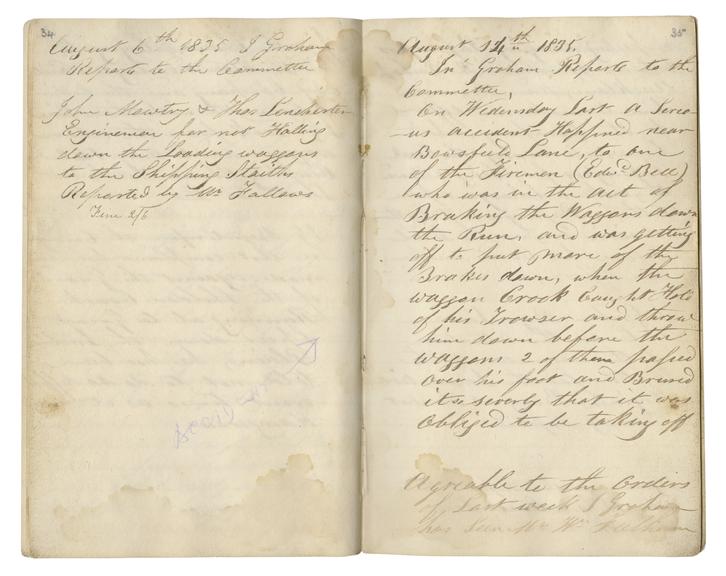 34
August 6th 1835 J Graham
Reports to the Committee
John Mowtry & Thos Linchister
Engineman for not Halling
down the Loading waggons
to the Shipping Staiths
Reported by Mr Fallows
Fine 2/6
35
August 14th 1835.
Jno Graham Reports to the
Committe,
On Wedensday Last a Sereo-
-us accident Happned near
Bowsfield Lane, to one
of the Firemen (Edwd Bell)
who was in the act of
Braking the Waggons down
the Run, and was getting
off to put more of the
Brakes down, when the
waggon Crook Caught Hold
of his Trowser and throw
him down before the
waggons 2 of them passed
over his foot and Brused
it so severly that it was
obliged to be taking off
Agreable to the Orders
of Last week J Graham
has Seen Mr Wm